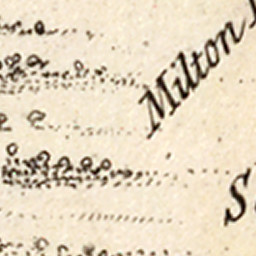 Milton
S